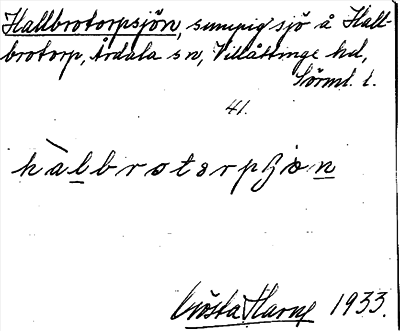 Hallbrotorpsjön, sumpig sjö å Hall-
brotorp, Årdala sn, Villåttinge hd,
Sörml. l.
41.
hàlbrotorpʃön
Gösta Harne 1933.